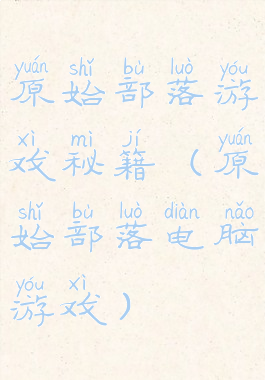 yuán shǐ bù luò yóu
原始部落游
xì mì jí yuán
戏秘籍（原
shǐ bù luò diàn nǎo
始部落电脑
yóu xì
游戏）